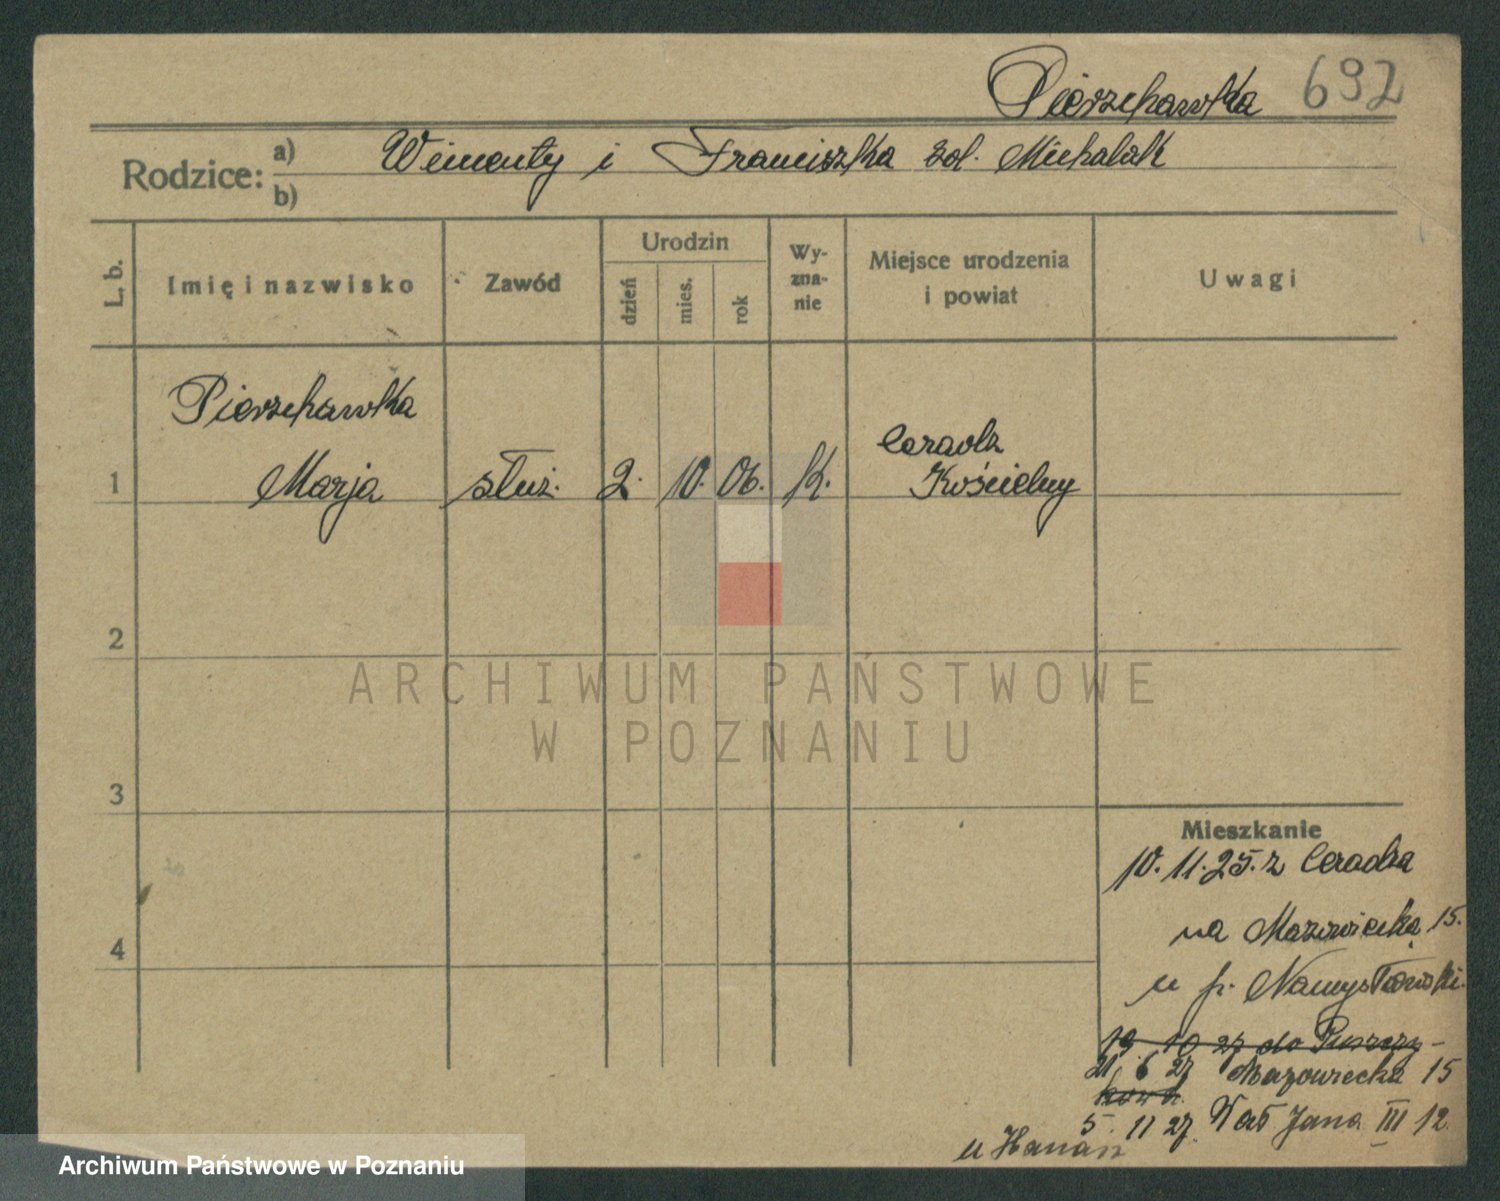 Pierzchawka 692
Rodzice: a) Wincenty i Franciszka zol. Michalak
b)
L. b.
Imię i nazwisko
Zawód
Urodzin
dzień
mies.
rok
Wy-
zna-
nie
Miejsce urodzenia
i powiat
Uwagi
Pierzchawka
1 Marja służ. 2. 10. 06. K. Ceradz
Kościelny
2
3
4
ARCHIWUM PAŃSTWOWE
W POZNANIU
Mieszkanie
10. 11. 25. z Ceradza
na Mazowiecką 15.
u p. Namysłowski.
19 10 27 do Puszczy-
21 6 27 Mazowiecka 15
kowa.
5. 11 27. Wał Jana III 12
u Hanasz
Archiwum Państwowe w Poznaniu